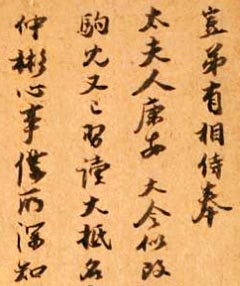 豈弟有相侍奉
太夫人康安大令似改
又已習讀大抵名
仲彬心事僕所深知